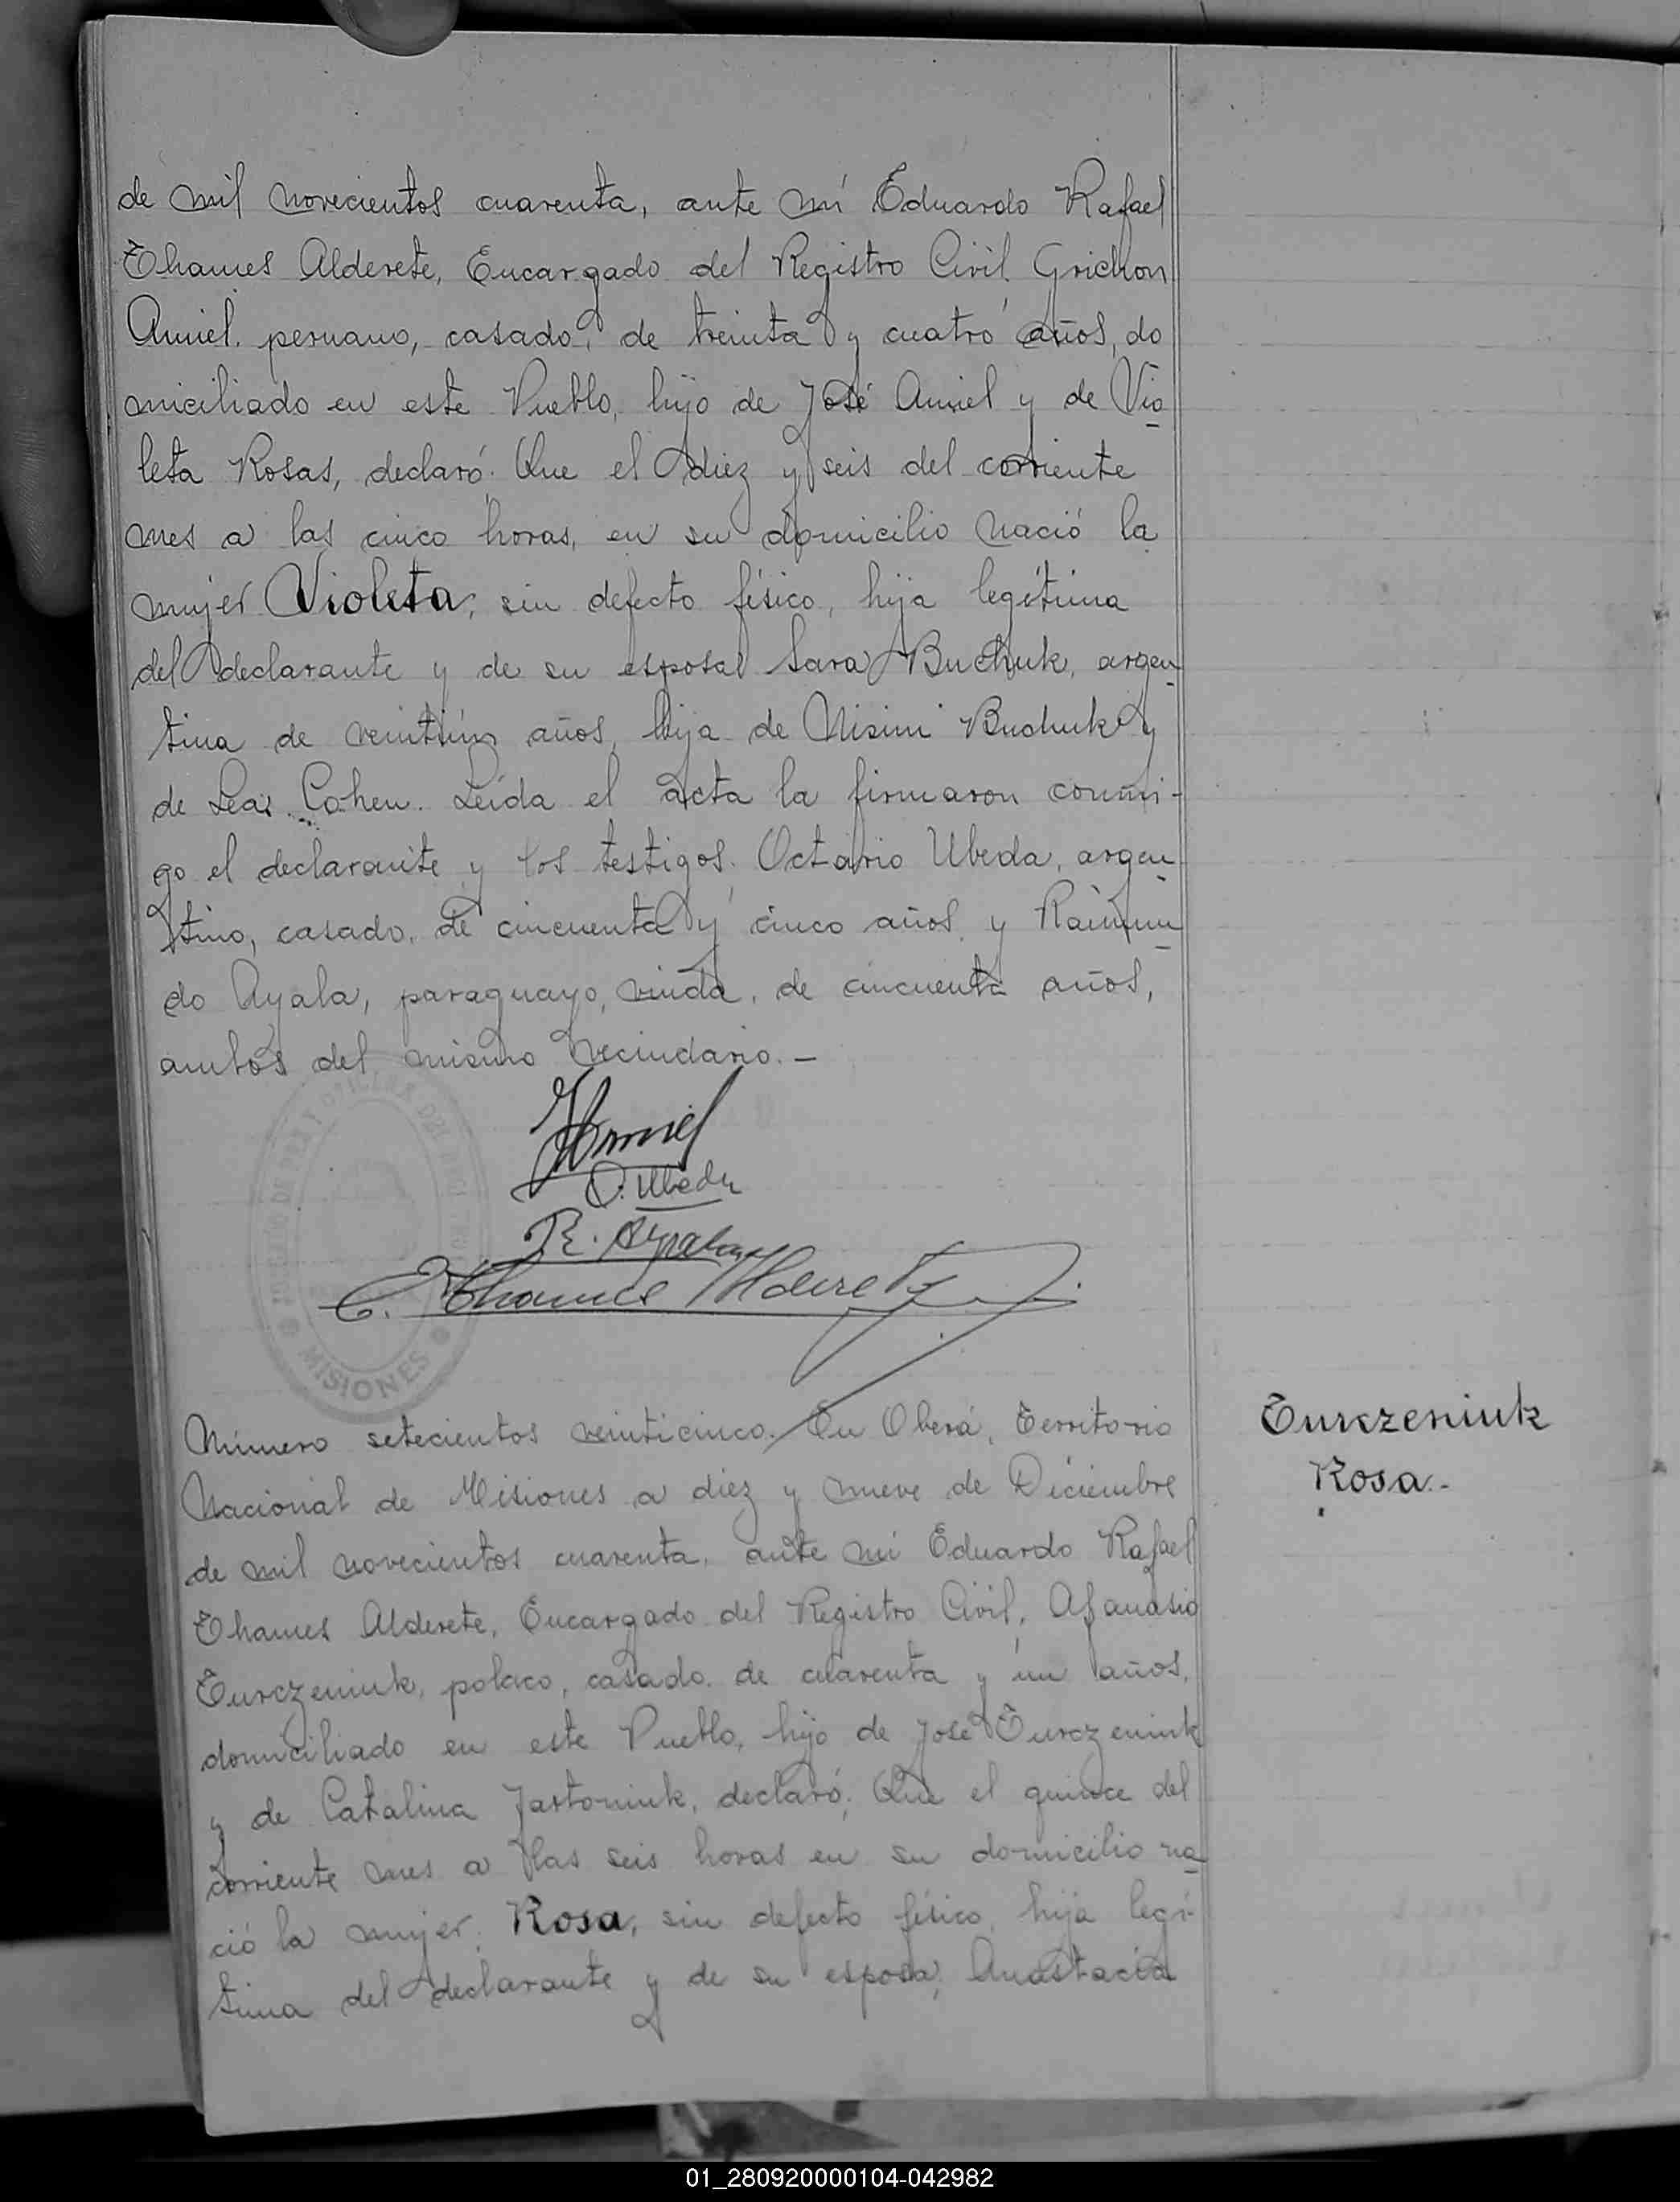 de mil novecientos cuarenta, ante mí Eduardo Rafael
Thames Alderete, Encargado del Registro Civil. Grichon
Amiel, peruano, casado, de treinta y cuatro años, do
miciliado en este Pueblo, hijo de José Amiel y de Vio
leta Rosas, declaró: Que el diez y seis del corriente
mes a las cinco horas, en su domicilio nació la
mujer Violeta, sin defecto físico, hija legítima
del declarante y de su esposa Sara Buchuk, argen
tina de veintiún años, hija de Nisim Buchuk y
de Lea Cohen. Leída el acta la firmaron conmi-
go el declarante y los testigos. Octavio Ubeda, argen
tino, casado, de cincuenta y cinco años y Raimun
do Ayala, paraguayo, viudo, de cincuenta años,
ambos del mismo vecindario.-
Amiel
O. Ubeda
R. Ayala
E. Thames Alderete
MISIONES
Número setecientos veinticinco. En Oberá, Territorio
Nacional de Misiones a diez y nueve de Diciembre
de mil novecientos cuarenta, ante mí Eduardo Rafael
Thames Alderete, Encargado del Registro Civil, Afanasio
Turczeniuk, polaco, casado, de cuarenta y un años,
domiciliado en este Pueblo, hijo de José Turczeniuk
y de Catalina Jastoniuk, declaró: Que el quince del
corriente mes a las seis horas en su domicilio na
ció la mujer: Rosa, sin defecto físico, hija legí-
tima del declarante y de su esposa, Anastacia
Turczeniuk
Rosa.-
01_280920000104-042982